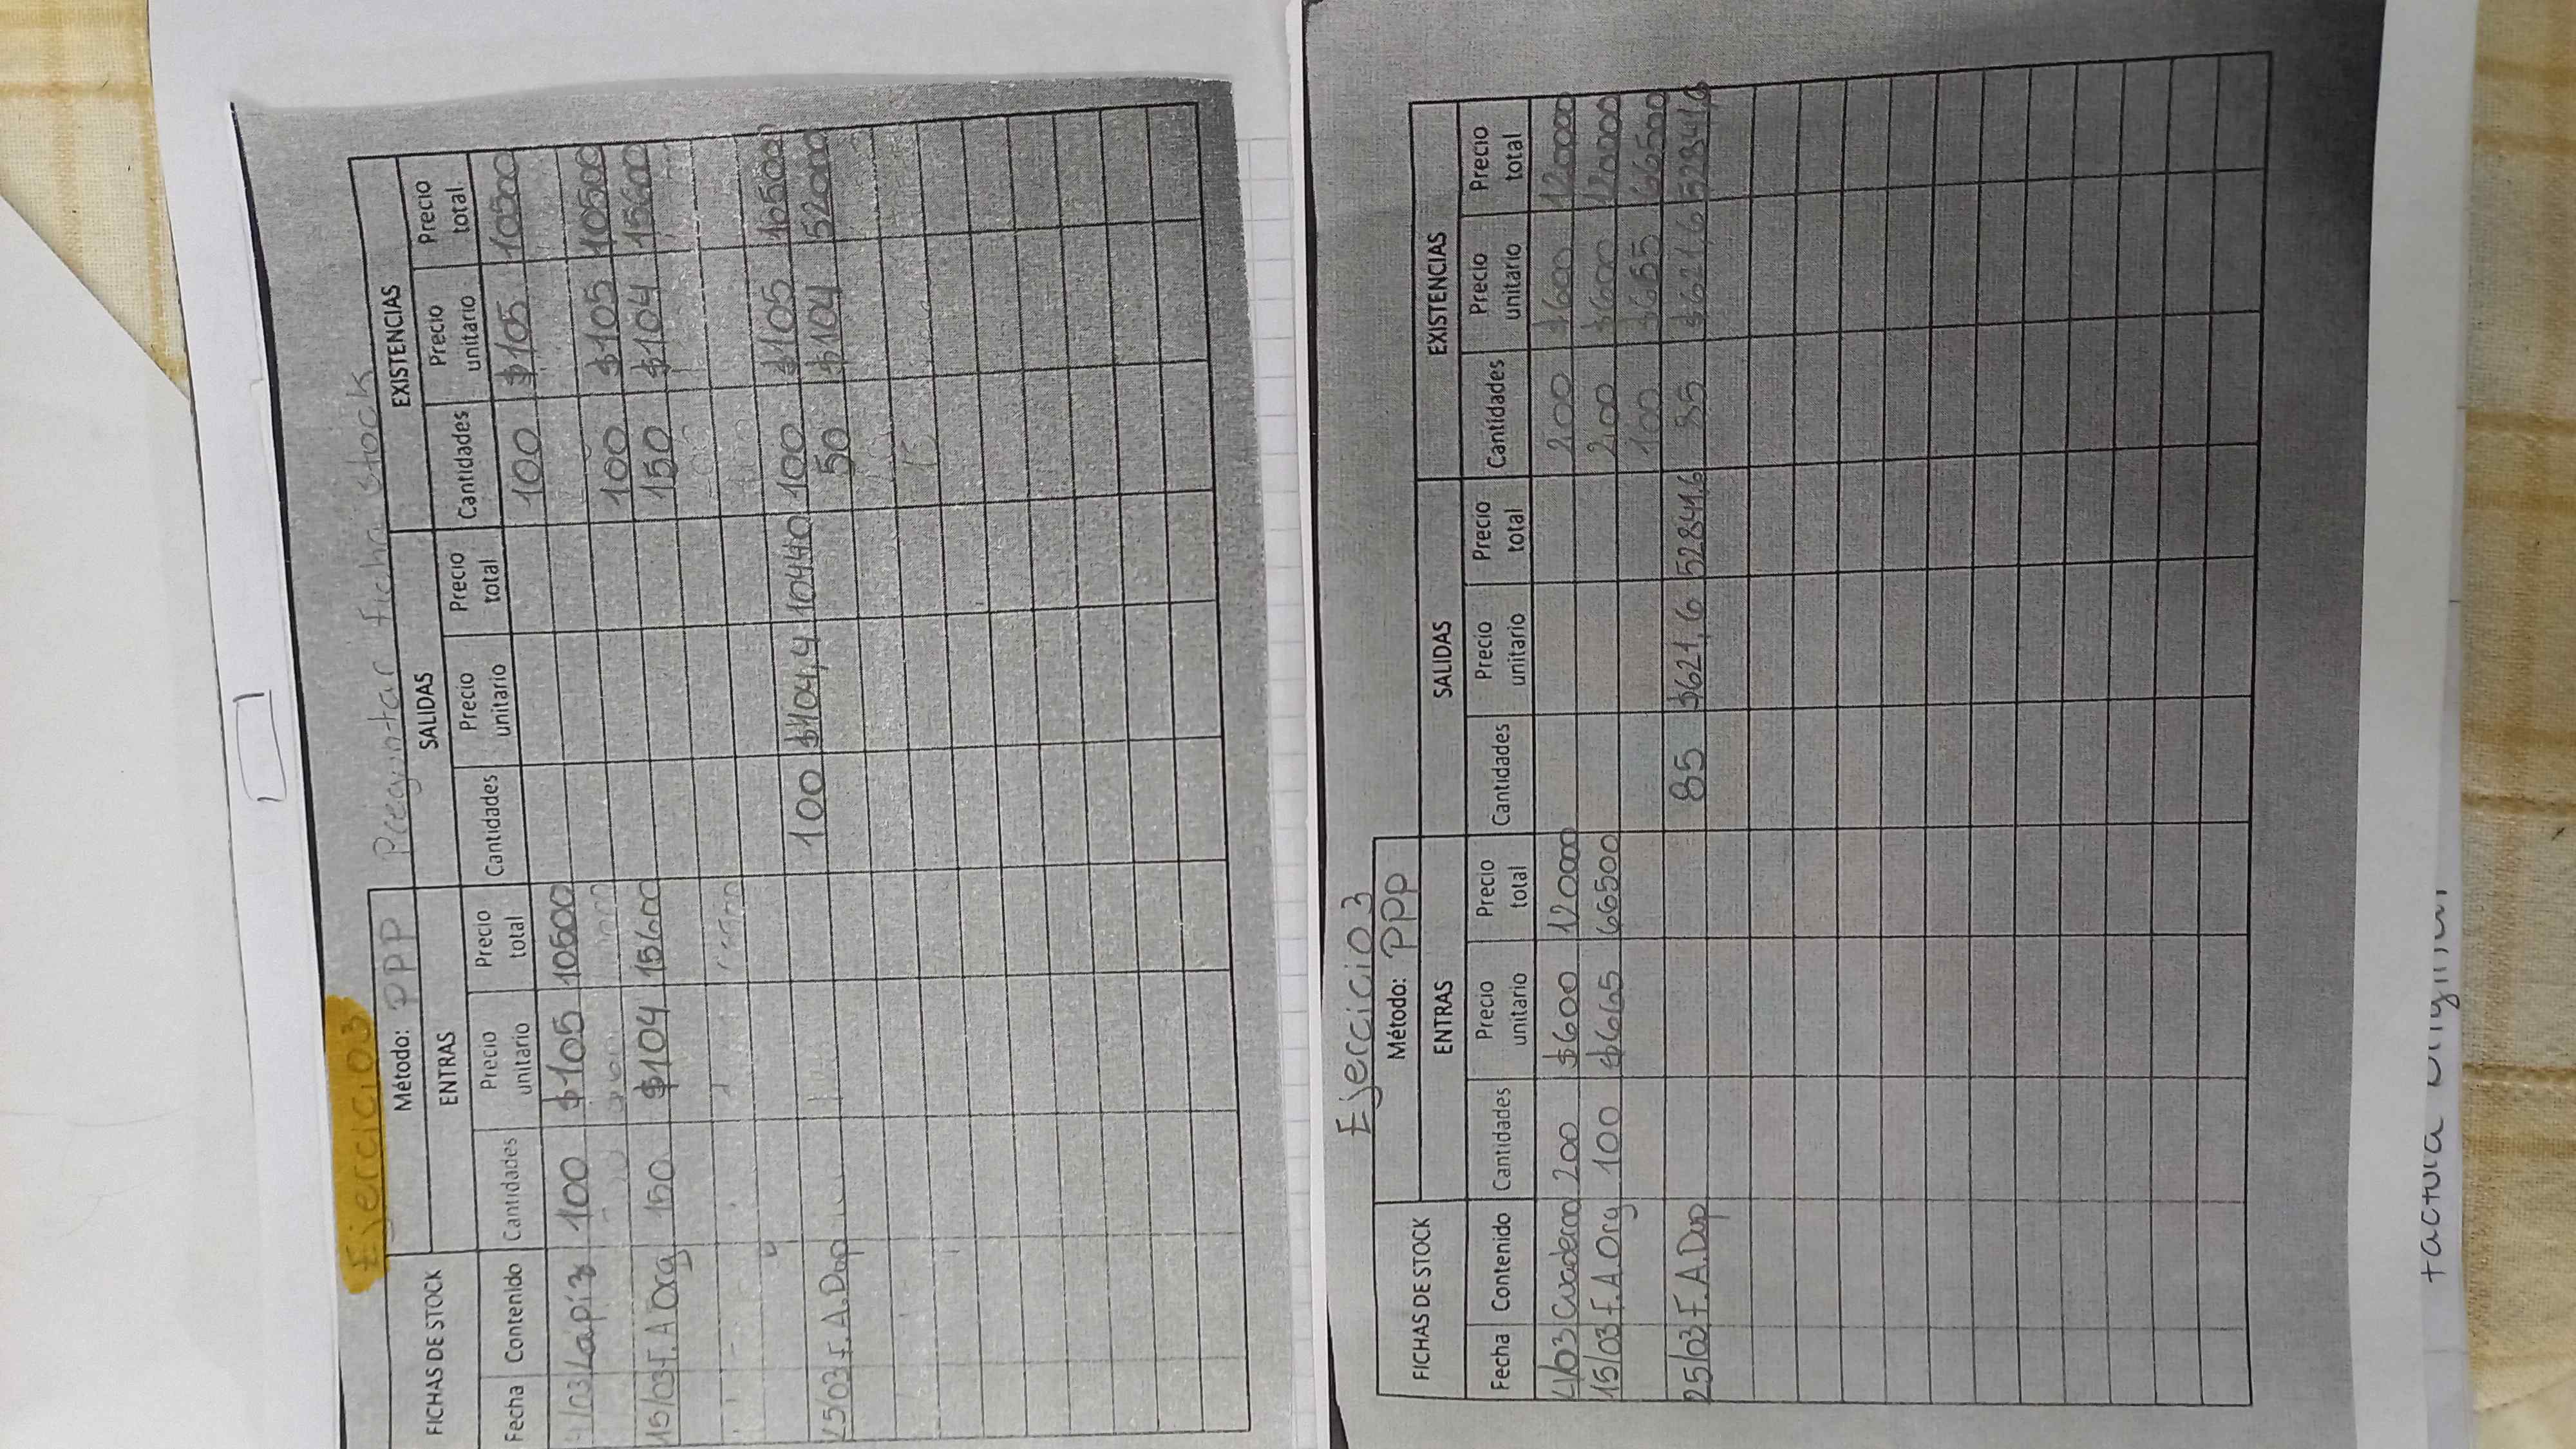 Ejercicio3
Método: PPP Preguntar ficha stock
FICHAS DE STOCK ENTRAS SALIDAS EXISTENCIAS
Fecha Contenido Cantidades Precio unitario Precio total Cantidades Precio unitario Precio total Cantidades Precio unitario Precio total
/03 Lapiz 100 $105 10500 100 $105 10500
100 $105 10500
15/03 F.A Org 150 $104 15600 150 $104 15600
100 $104,4 10440 100 $105 10500
25/03 F.A.Dup 50 $104 52000
15
Ejercicio3
Método: PPP
FICHAS DE STOCK ENTRAS SALIDAS EXISTENCIAS
Fecha Contenido Cantidades Precio unitario Precio total Cantidades Precio unitario Precio total Cantidades Precio unitario Precio total
4/03 Cuaderno 200 $600 120000 200 $600 120000
15/03 F.A.Org 100 $665 66500 200 $600 120000
100 $665 66500
25/03 F.A.Dup 85 $621,6 52841,6 85 $621,6 52841,6
factura original